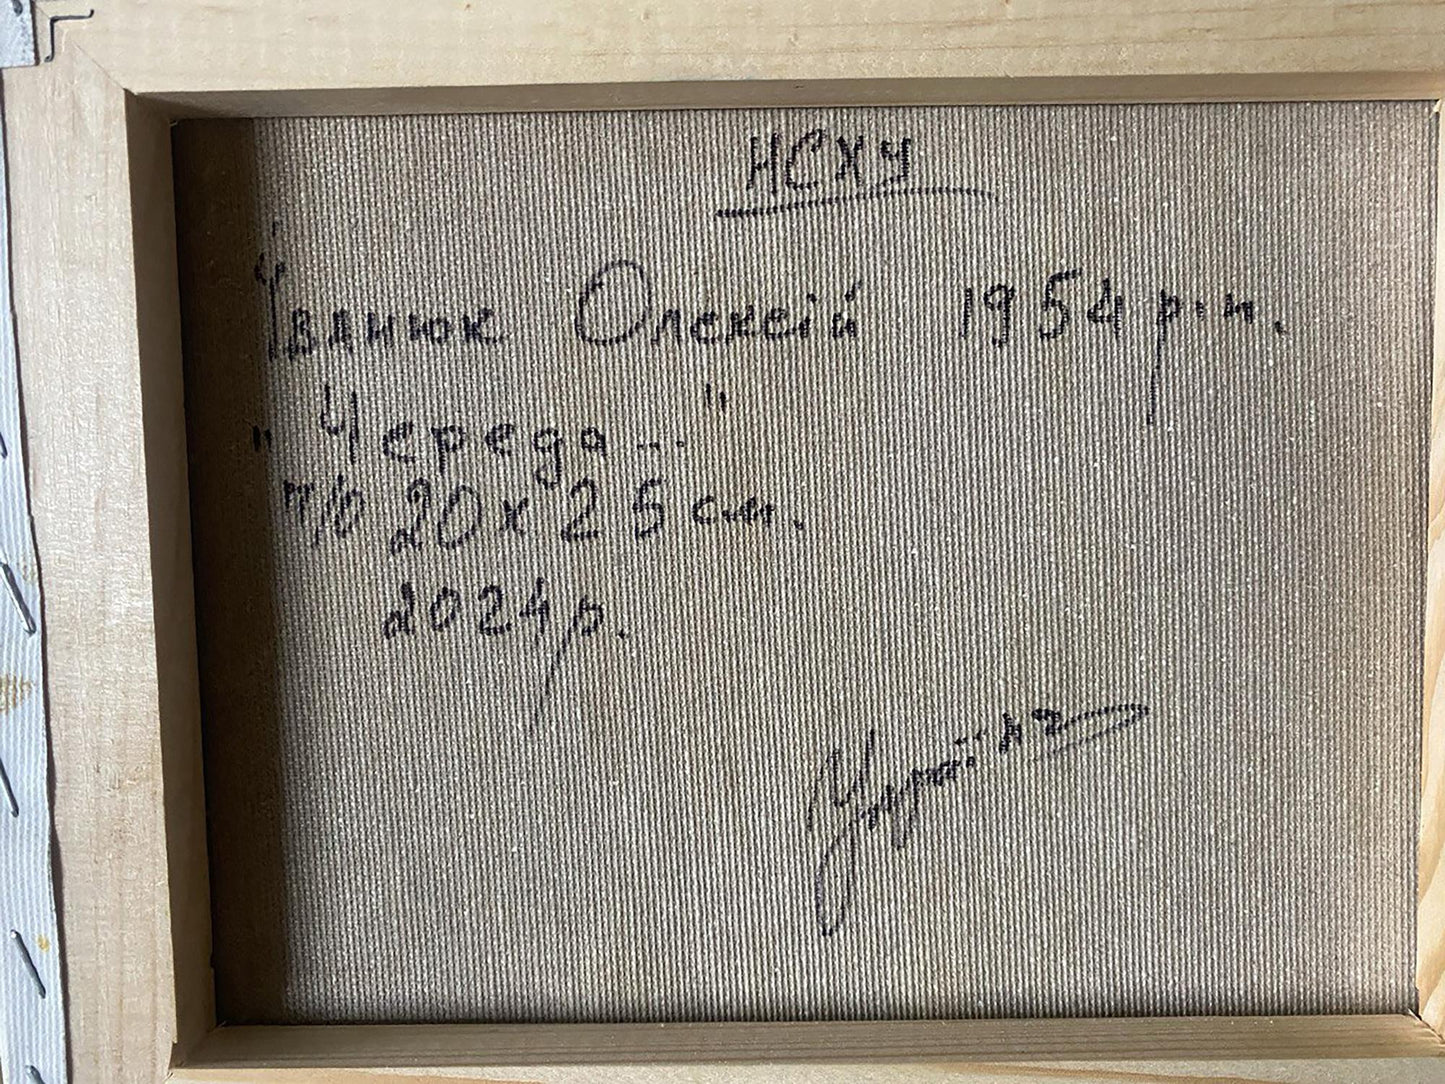 НСХУ
Іванюк Олексій 1954 р.н.
"Череда..."
п/о 20х25 см.
2024р.